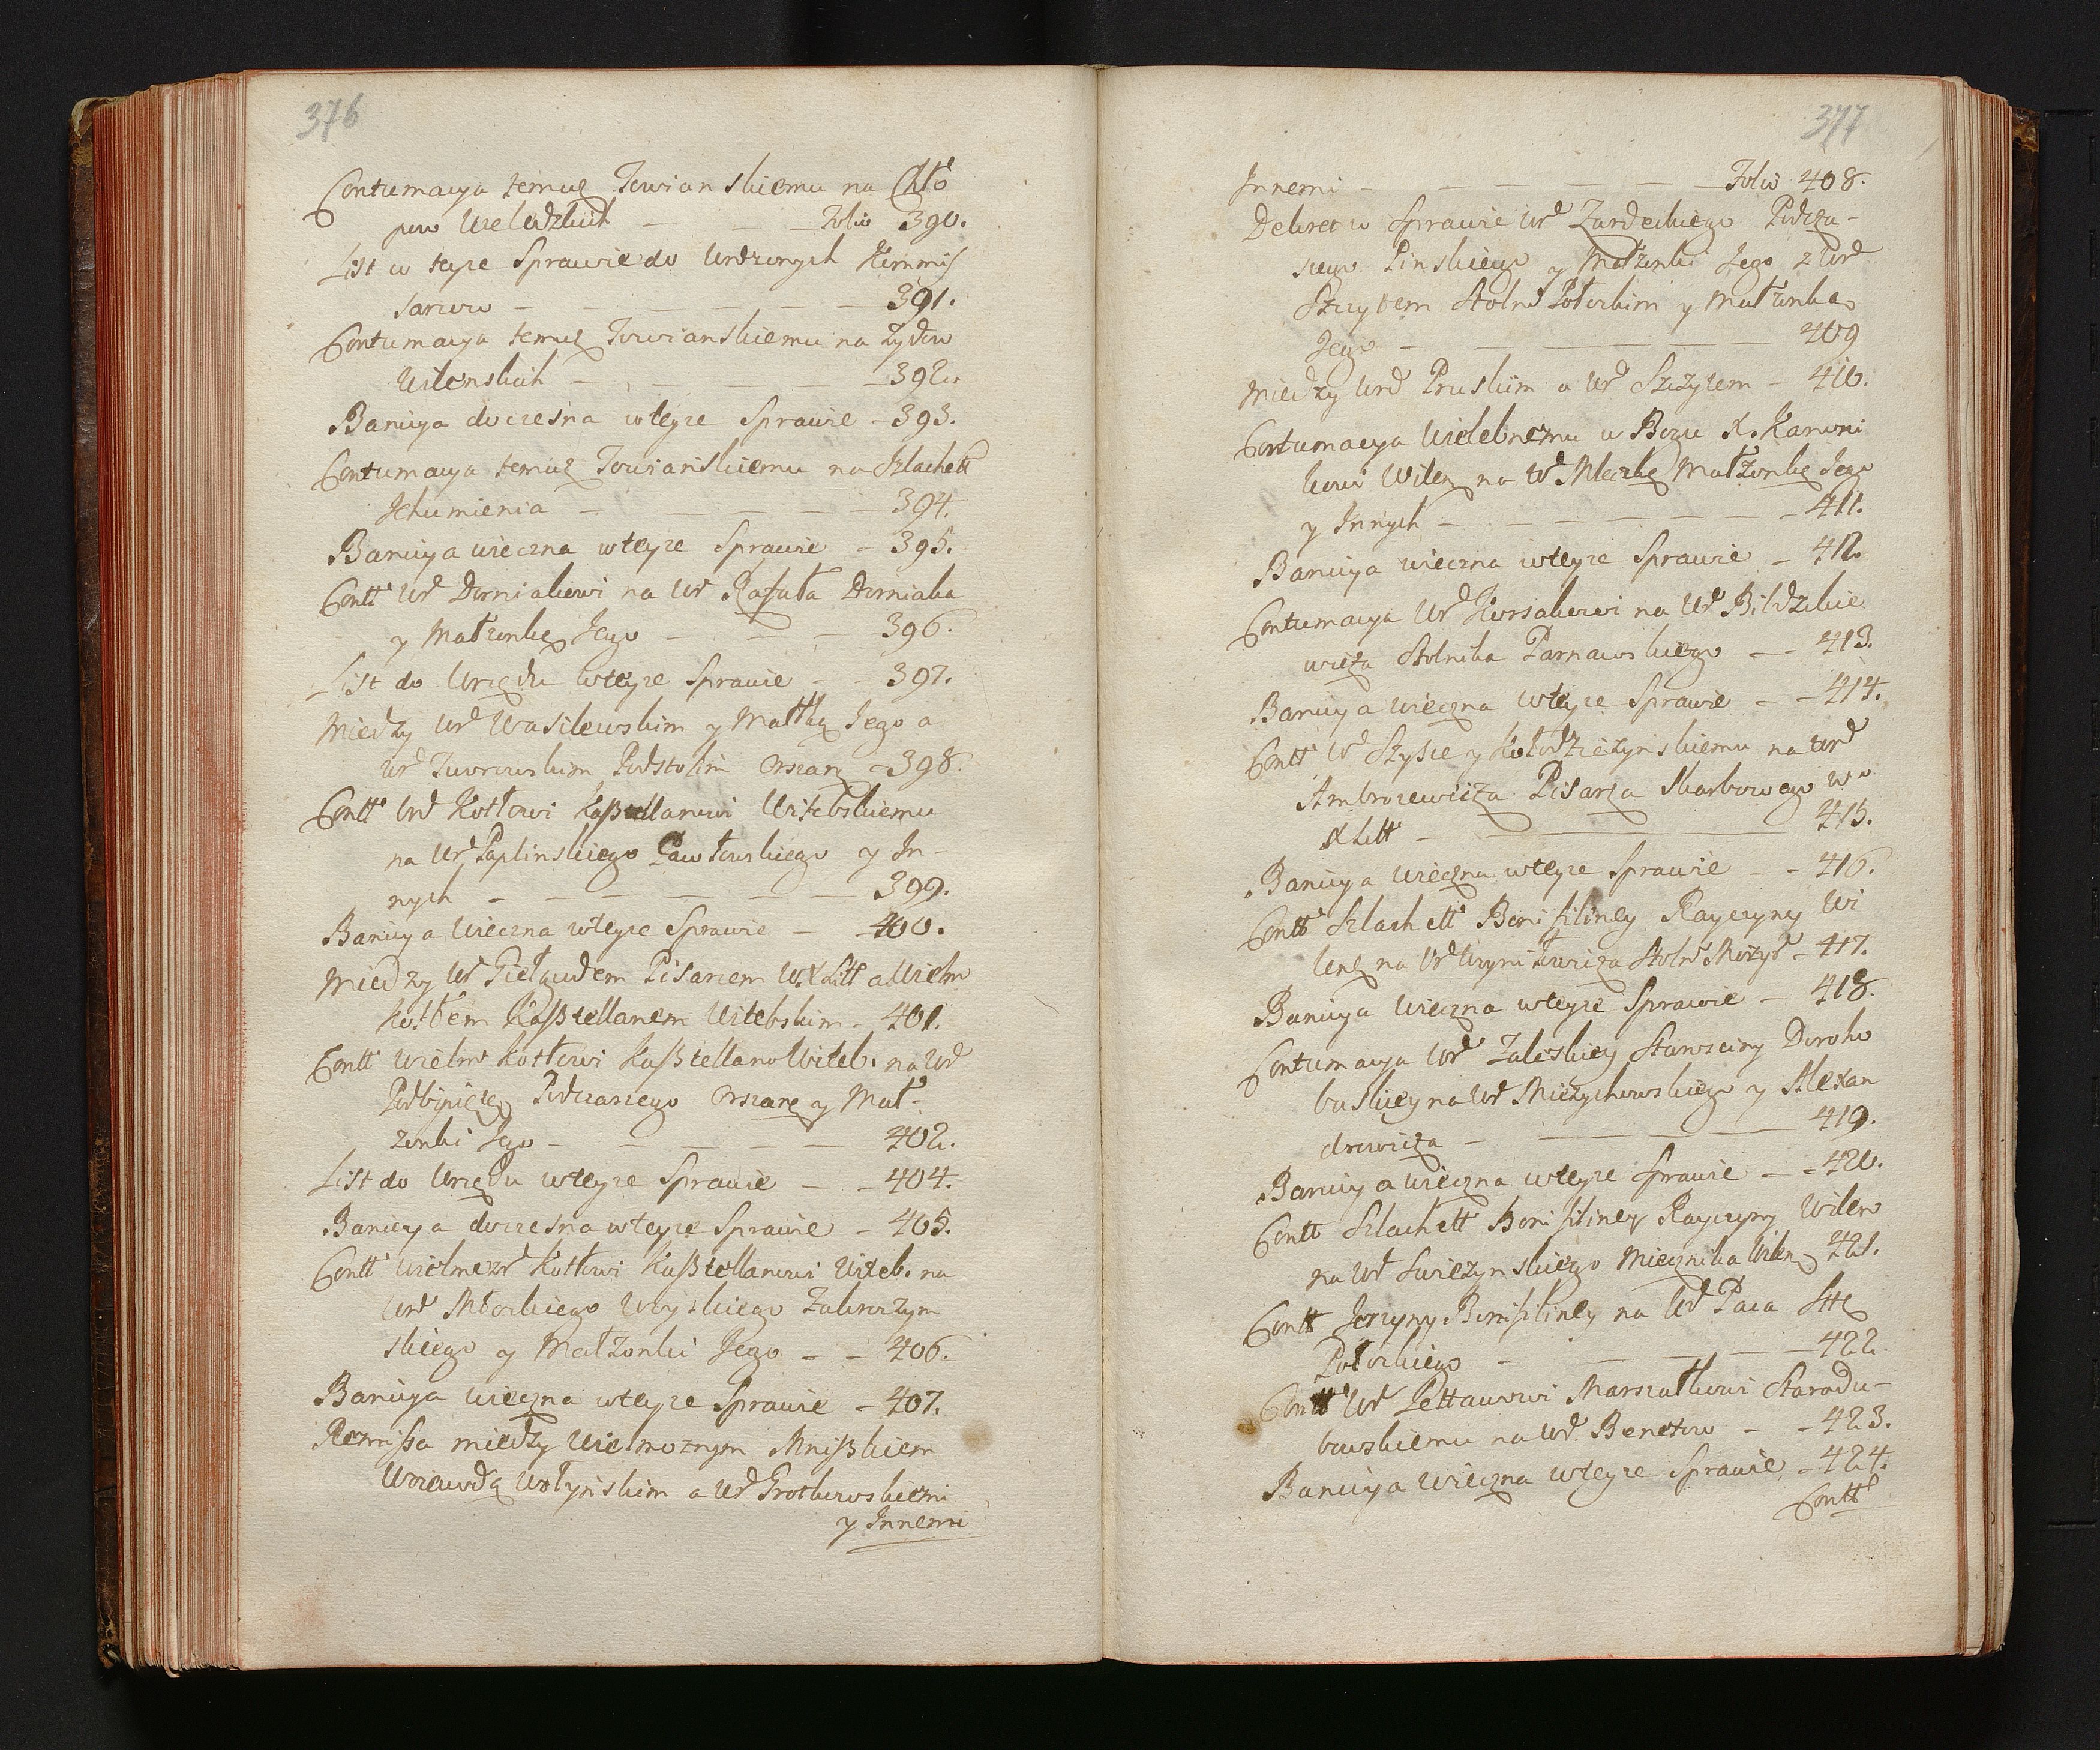 376
Contumacya temuż Towianskiemu na Chło
pow Wieladzkich — — Folio 390.
List w teyze Sprawie do Urdzonych Kommis
sarzow — — — — — 391.
Contumacya temuż Towianskiemu na Żydow
Wilenskich — — — 392.
Banicya doczesna w teyze Sprawie – 393.
Contumacya temuż Towianskiemu na Szlachett
Jchumienia — — — — 394.
Banicya wieczna w teyze Sprawie – 395.
Contt Ur Domiakowi na Ur Rafała Domiaka
y Małzonkę Jego — — — 396.
List do Urzędu w teyze Sprawie – – 397.
Między Ur Wasilewskim y Matką Jego a
Ur Zuorowskim Podstolim Orszanz – 398.
Contt Urd Kotłowi Kaßtellanowi Witebskiemu
na Ur Paplinskiego Pawłowskiego y In-
nych — — — — — 399.
Banicya Wieczna w teyze Sprawie – – 400.
Między Ur Giełgudem Pisarzem WXLitt a Wielm
Kotłem Kaßtellanem Witebskim – 401.
Contt Wielm Kotłowi Kaßtellano Witeb. na Urd
Podbipiętę Podczaszego Orszanz y Mał-
zonki Jego — — — — 402.
List do Urzędu w teyze Sprawie – – 404.
Banicya doczesna w teyze Sprawie – 405.
Contt Wielmozr Kotłowi Kaßtellanowi Witeb. na
Urd Młockiego Woyskiego Zakroczym
skiego y Małzonki Jego – – 406.
Banicya wieczna w teyze Sprawie – 407.
Remißa między Wielmoznym Mnißkiem
Woiewodą Wołynskim a Ur Grothowskiemi
y Innemi
377
Innemi — — — — — Folio 408.
Dekret w Sprawie Urd Zardeckiego Podcza-
szego Pinskiego y Małzonki Jego z Urd
Szczytem Stoln Połockim y Małzonką
Jego — — — — — 409
Między Urd Pruskim a Ur Szczytem – 410.
Contumacya Wielebnemu w Bogu X. Kanoni
kowi Wilen na Ur Mleczkę Małżonkę Jego
y Innych — — — — — 411.
Banicya wieczna w teyze Sprawie – 412.
Contumacya Urd Korsakowi na Urd Bildzkie
wicza Stolnika Parnawskiego – – 413.
Banicya wieczna w teyze Sprawie – – 414.
Contt Urd Szyscie y Kołodzieżynskiemu na Urd
Ambrozewicza Pisarza Skarbowego Wo
XLitt — — — — 415.
Banicya wieczna w teyze Sprawie – – 416.
Contt Szlachett Bonifiliney Rayczyny Wi
leng na Ur Woyniłowicza Stoln Mozyr – 417.
Banicya wieczna w teyze Sprawie – 418.
Contumacya Urd Zaleskiey Starosciny Doroho
buskiey na Ur Mieżychowskiego y Alexan
drowicza — — — — 419.
Banicya wieczna w teyze Sprawie – – 420.
Contt Szlachett Bonifiliney Rayczyny Wilen
na Ur Swieżynskiego Miecznika Wilen 421.
Contt Jerzyny Bonifiliney na Ur Paca Stte
Połockiego — — — — 422.
Contt Ur Pettawowi Marszałkowi Starodu-
bowskiemu na Urd. Benetow – – 423.
Banicya wieczna w teyze Sprawie – 424.
Contt